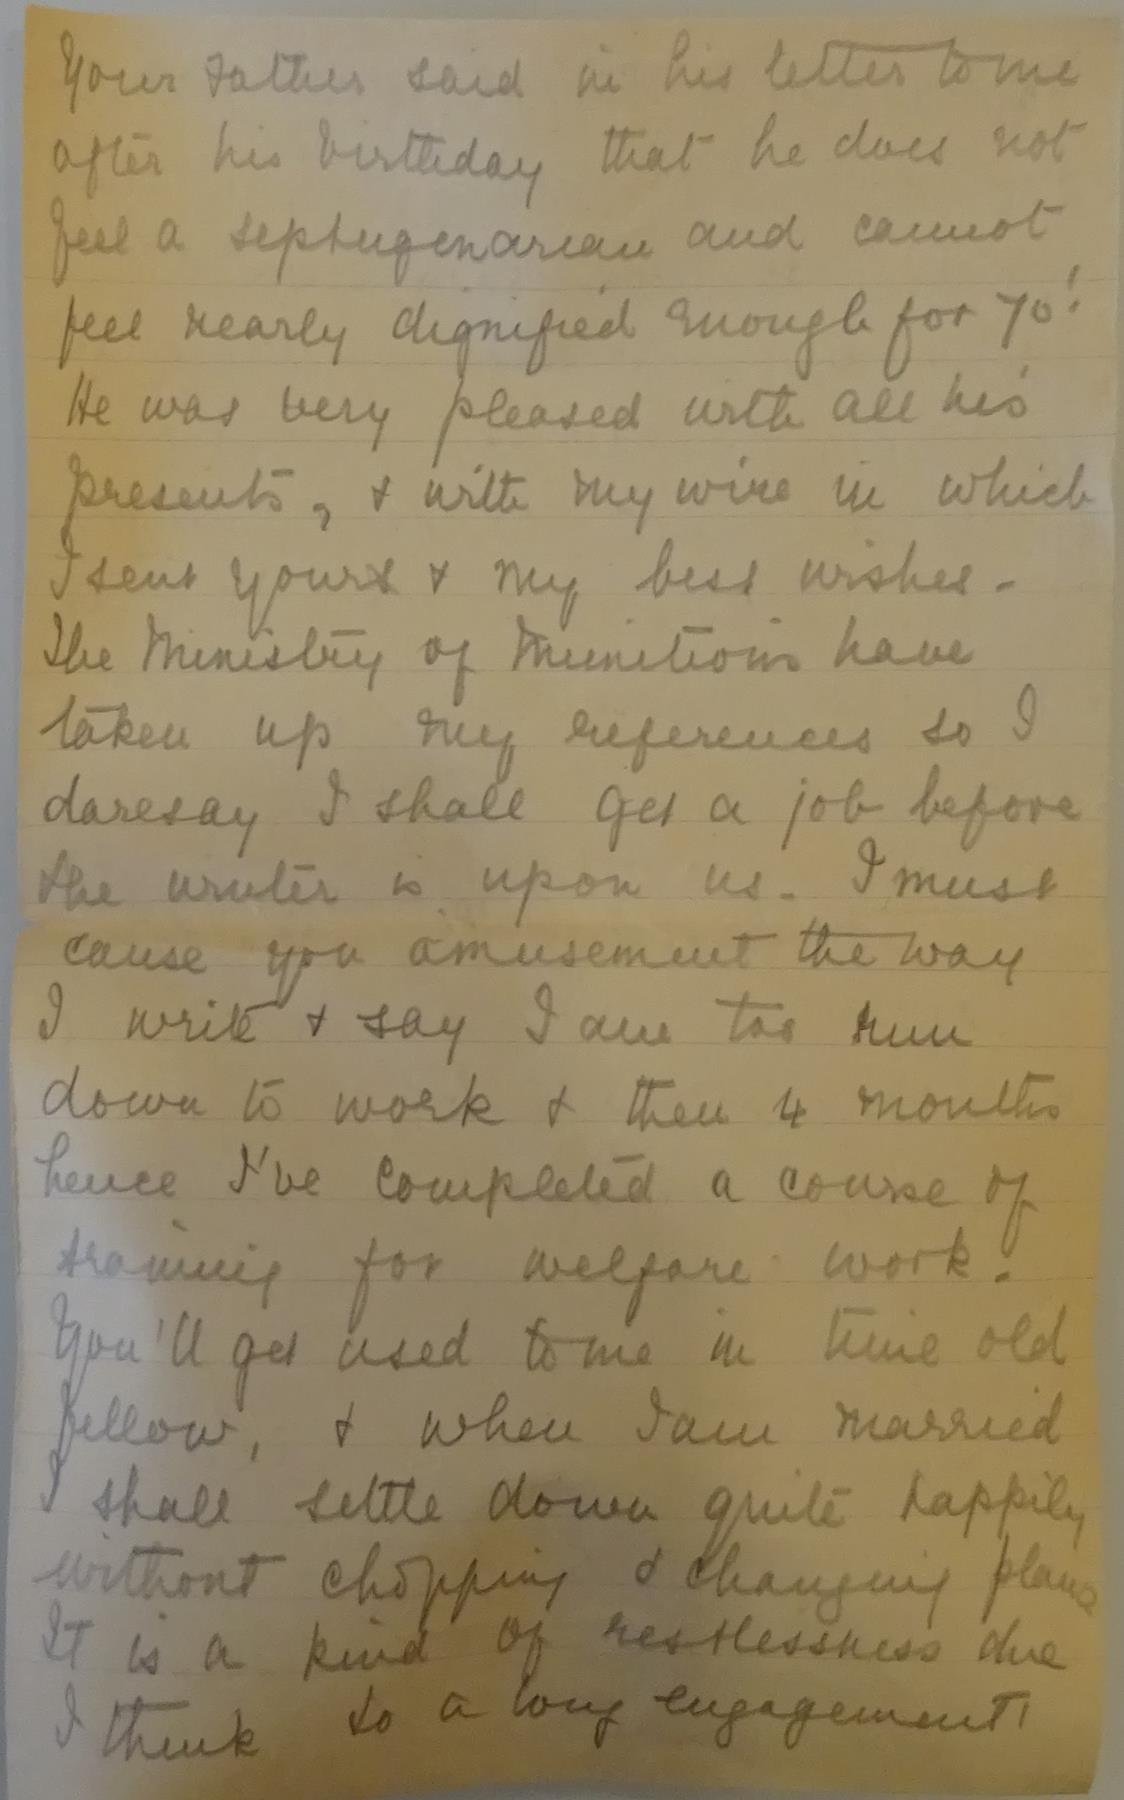 Your Father said in his letter to me
after his birthday that he does not
feel a septugenarian and cannot
feel nearly dignified enough for 70!
He was very pleased with all his
presents, & with my wire in which
I sent yours & my best wishes -
The Ministry of Munitions have
taken up my references so I
daresay I shall get a job before
the winter is upon us. I must
cause you amusement the way
I write & say I am too run
down to work & then 4 months
hence I've completed a course of
training for welfare work.
You'll get used to me in time old
fellow, & when I am married
I shall settle down quite happily
without chopping & changing plans
It is a kind of restlessness due
I think to a long engagement!